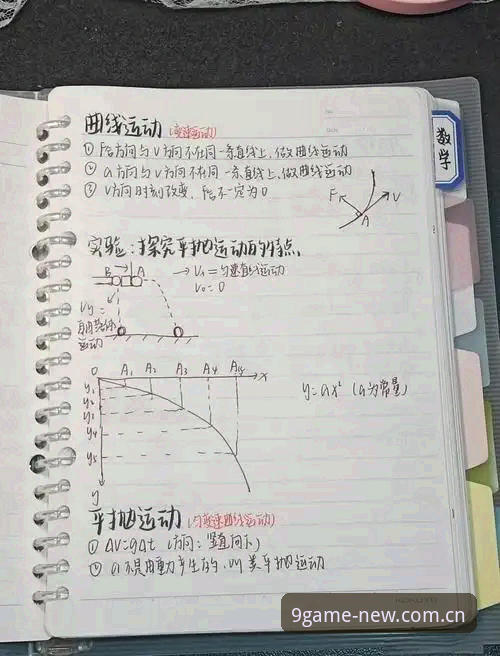 数学
曲线运动 (变速运动)
① F合方向与V方向不在同一条直线上,做曲线运动
② a方向与V方向不在同一条直线上,做曲线运动
③ V方向时刻改变, F合不一定为0
F V
A
实验:探究平抛运动的特点
B A
→ Vx=匀速直线运动
V0=0
Vy=
自由落体
运动
0 A1 A2 A3 A4 A5 x
y1
y2
y3
y4
y5
y
y=ax² (a为常量)
平抛运动 (匀变速曲线运动)
① ΔV=gΔt (方向:竖直向下)
② a不是由重力产生的,叫类平抛运动
9game-new.com.cn